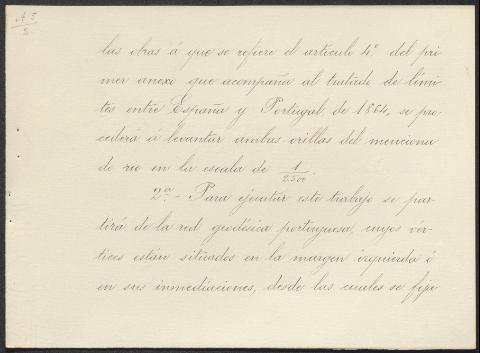 A 3
2
las obras á que se refiere el artículo 4º. del pri
mer anexo que acompaña al tratado de lími
tes entre España y Portugal de 1864, se pro-
cederá á levantar ambas orillas del menciona
do rio en la escala de 1/2500.
2ª.- Para ejecutar este trabajo se par-
tirá de la red geodésica portuguesa, cuyos vér-
tices están situados en la margen izquierda ó
en sus inmediaciones, desde las cuales se fija